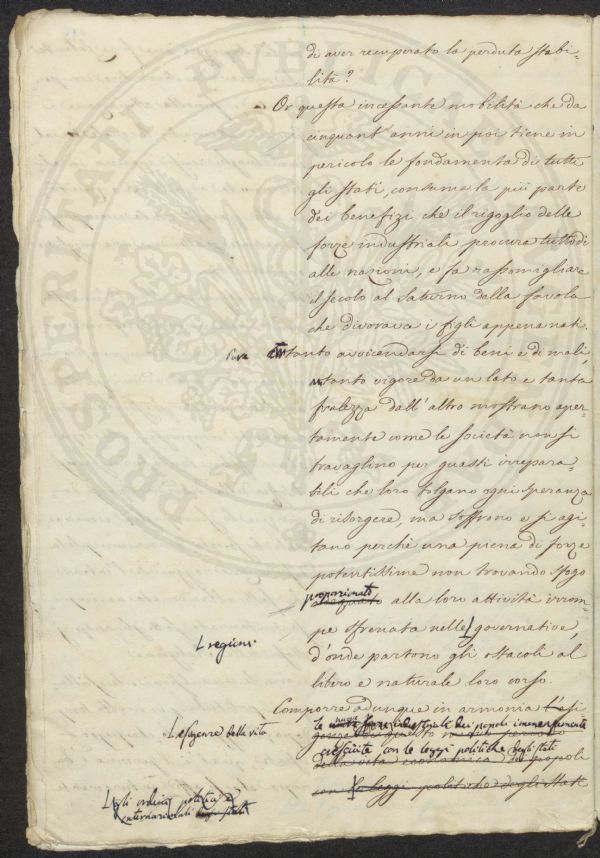 di aver recuperato la perduta stabi-
lità?
Or questa incessante mobilità che da
cinquant'anni in poi tiene in
pericolo le fondamenta di tutti
gli stati, consuma la più parte
dei benefizi, che il rigoglio delle
forze industriali procura tuttodì
alle nazioni, e fa rassomigliare
il secolo al Saturno della favola
che divorava i figli appena nati.
Pure tanto avvicendarsi di beni e di mali
tanto vigore da un lato e tanta
fralezza dall'altro mostrano aper-
tamente come le società non si
travaglino per guasti irrepara-
bili che loro tolgano ogni speranza
di risorgere, ma soffrono e si agi-
tano perchè una piena di forze
potentissime non trovando sfogo
proporzionato
adeguato alla loro attività irrom-
pe sfrenata nelle governative,
regioni
d'onde partono gli ostacoli al
libero e naturale loro corso.
Comporre adunque in armonia
le nuove forze industriale dei popoli immensamente
Le esigenze della vita
cresciute con le leggi politiche degli stati
della vita economica dei popoli
con le leggi politiche degli stati
gli ordini politici e
internazionali degli stati
PROSPERITATI PVBLICAE